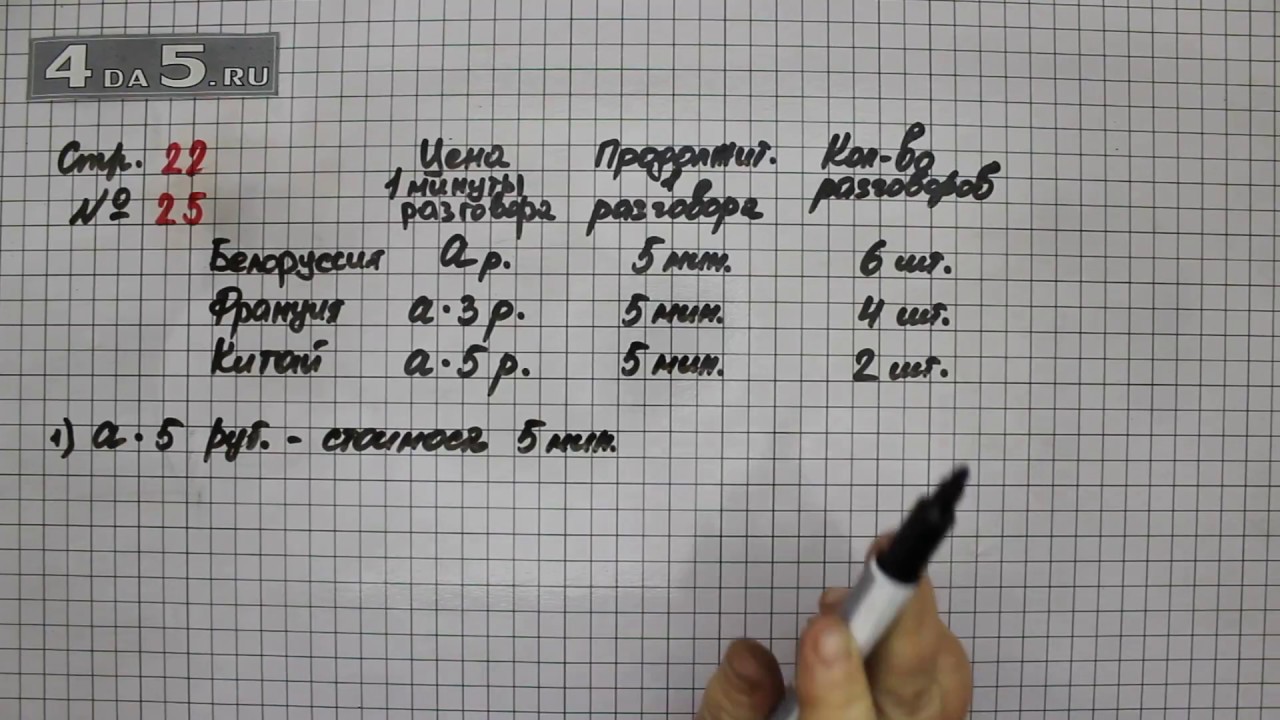 4DA5.RU
Стр. 22
№ 25
Цена
1 минуты
разговора
Продолжит.
1
разговора
Кол-во
разговоров
Белоруссия а р. 5 мин. 6 шт.
Франция а · 3 р. 5 мин. 4 шт.
Китай а · 5 р. 5 мин. 2 шт.
1) а · 5 руб. - стоимость 5 мин.